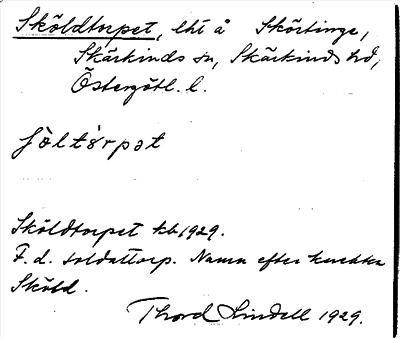 Sköldtorpet, lht å Skörtinge,
Skärkinds sn, Skärkinds hd,
Östergötl. l.
Sköldtorpet kb 1929.
F. d. soldattorp. Namn efter knekten
Sköld.
Thord Lindell 1929.